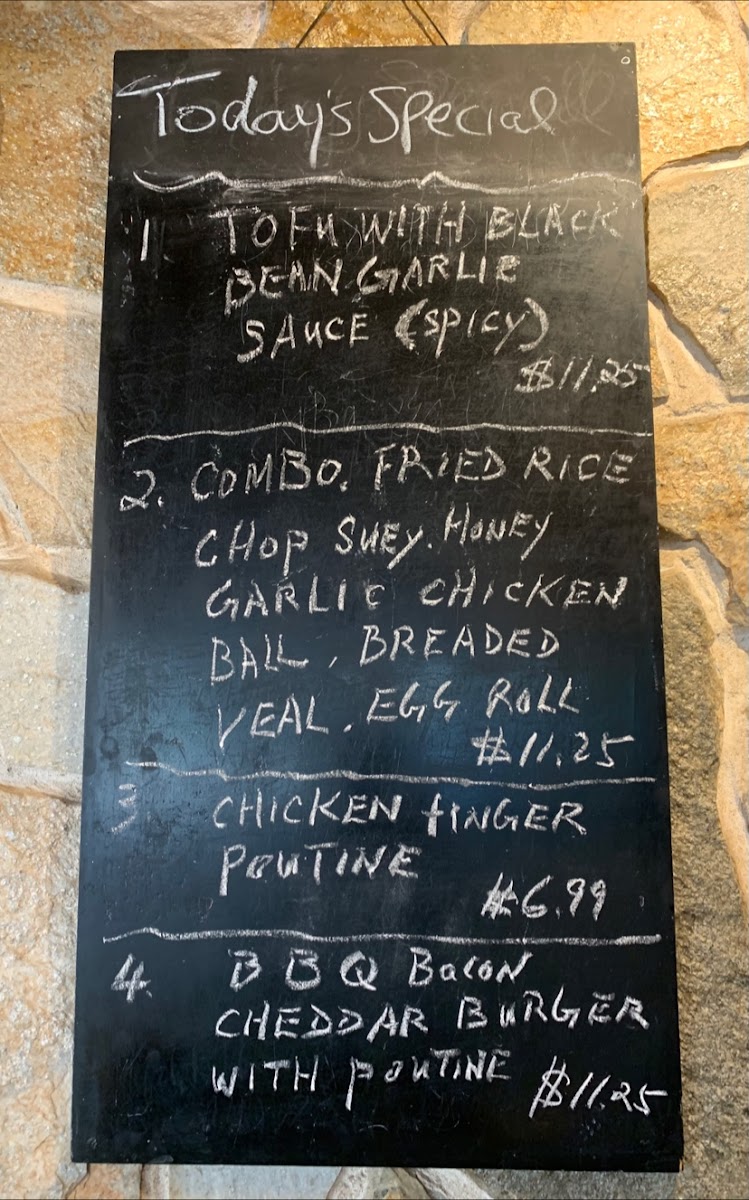 Today's Special
1 TOFU WITH BLACK
BEAN GARLIC
SAUCE (SPICY)
$11.25
2. COMBO. FRIED RICE
CHOP SUEY. HONEY
GARLIC CHICKEN
BALL, BREADED
VEAL. EGG ROLL
$11.25
3 CHICKEN fINGER
POUTINE
$6.99
4. BBQ BaCON
CHEDDAR BURGER
WITH POUTINE $11.25